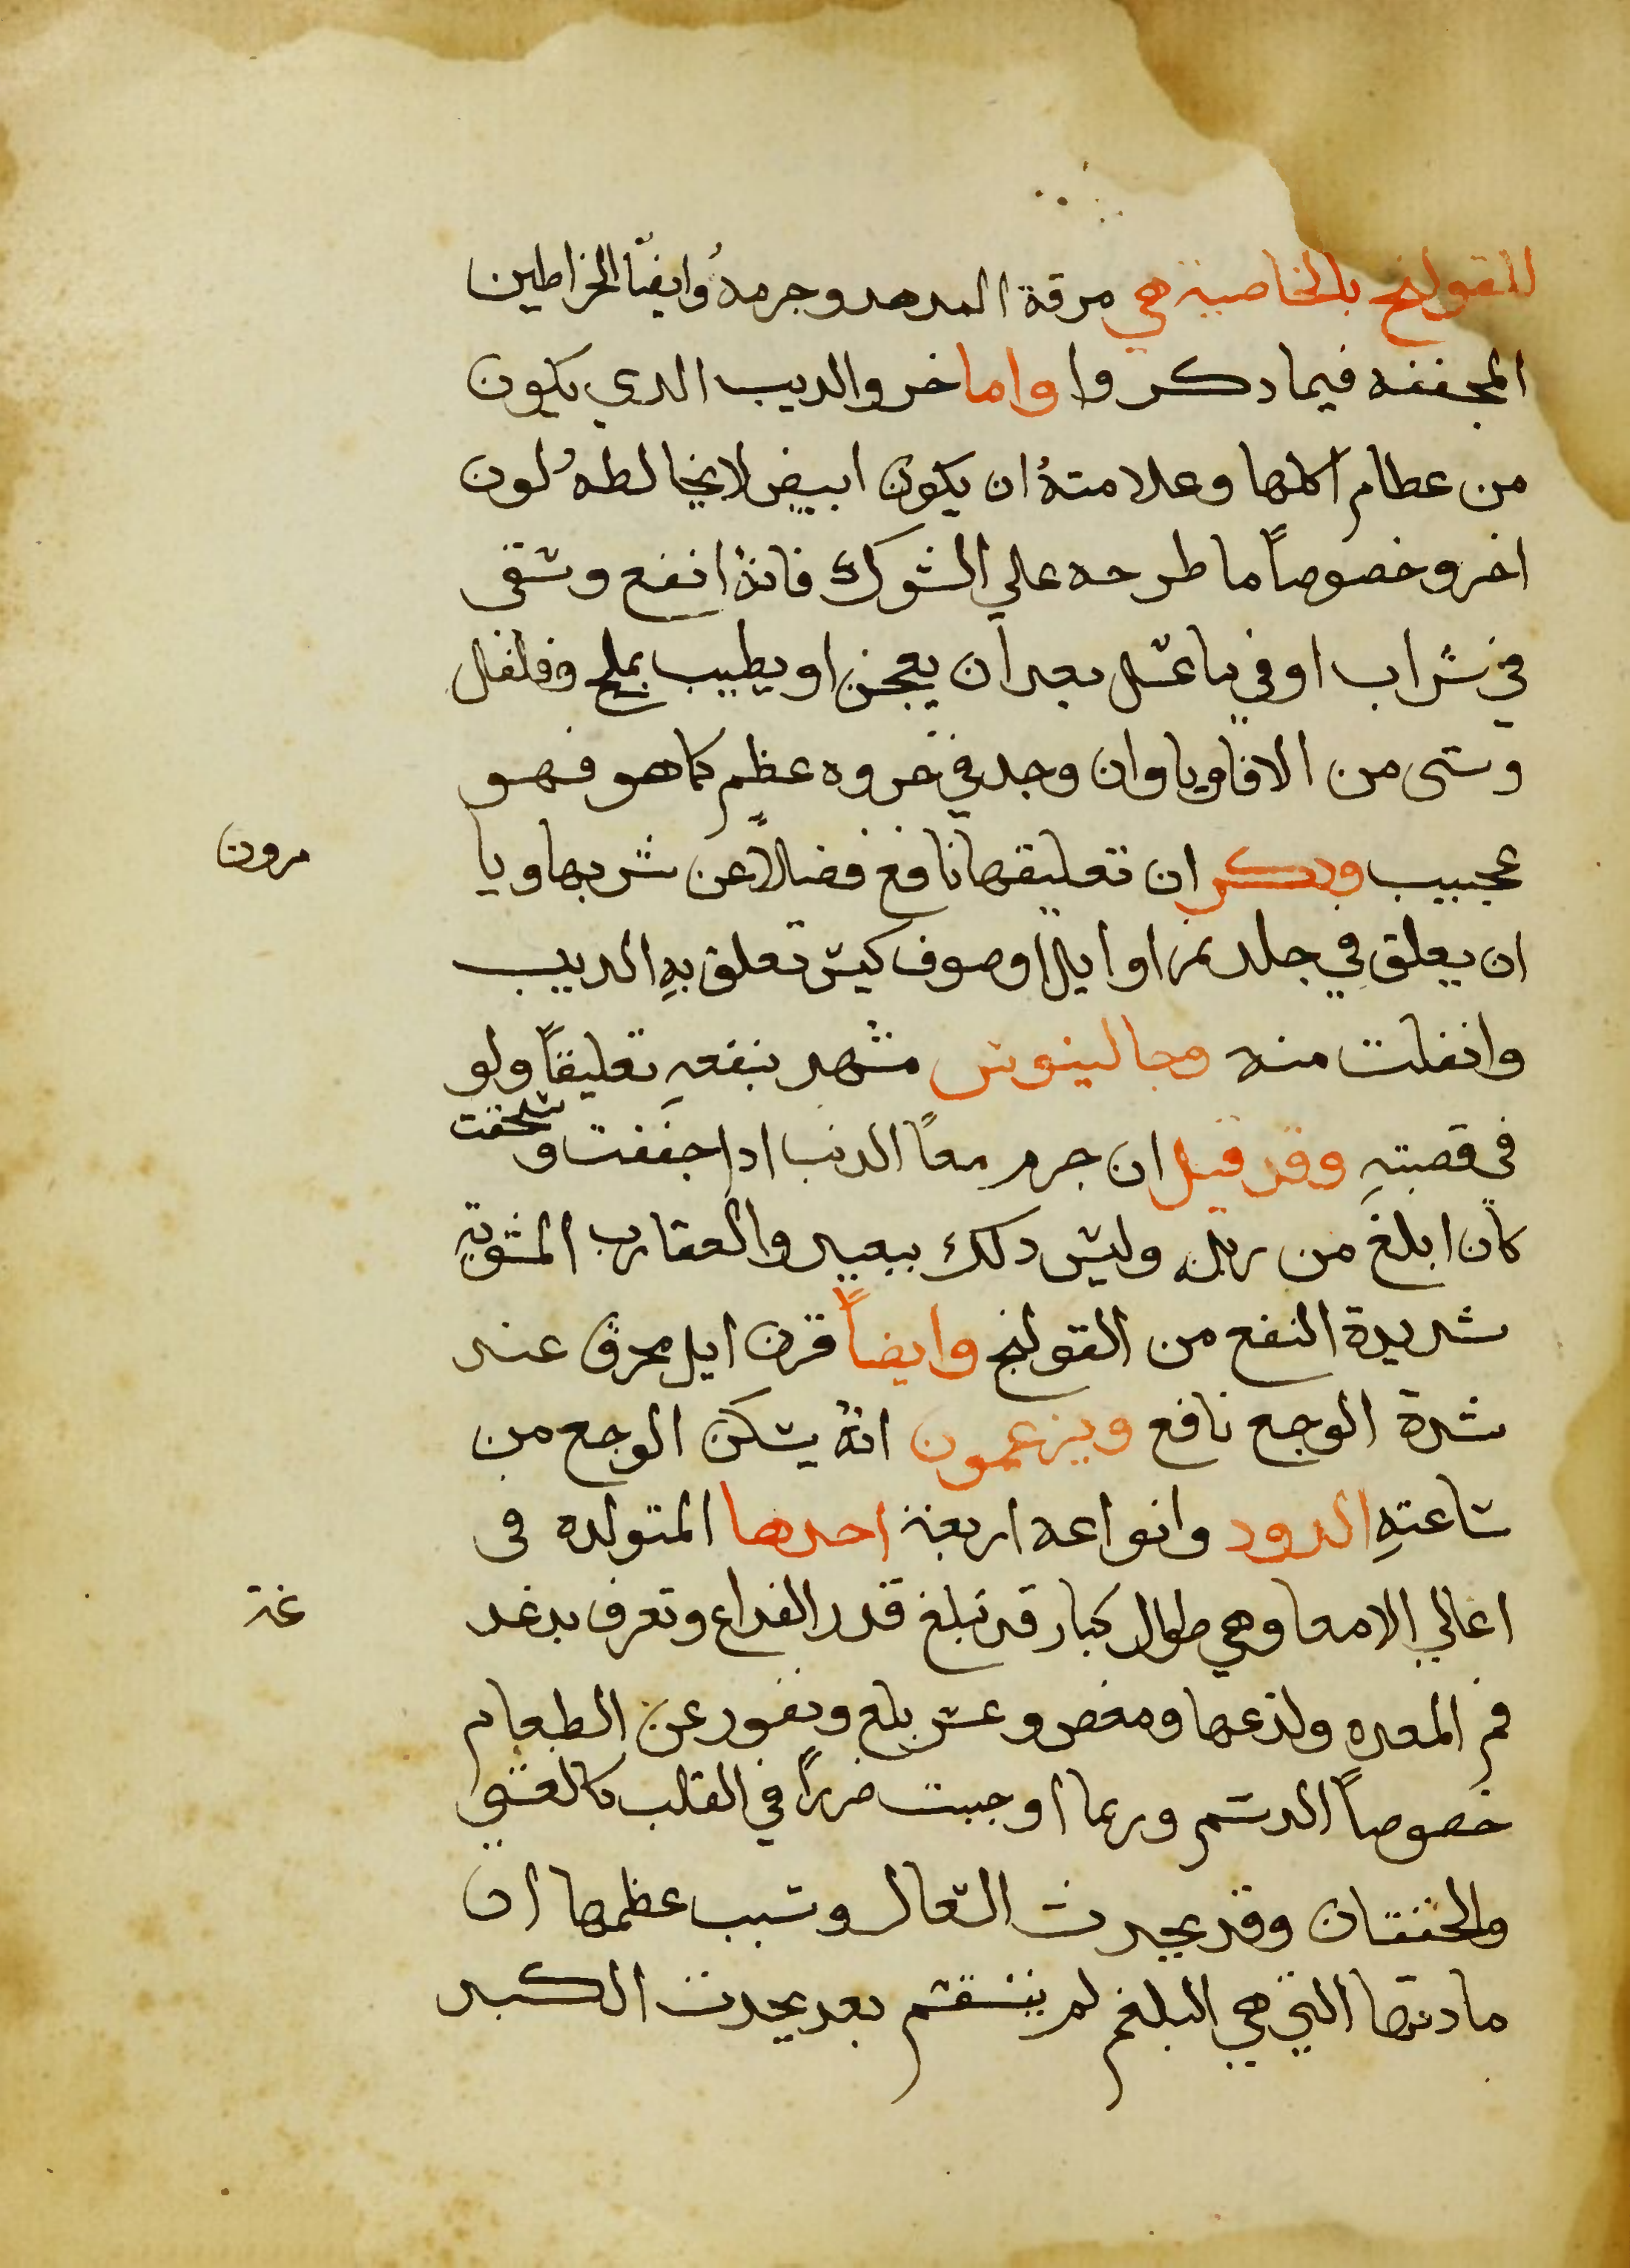 للقولنج بالخاصية هي مرقة الهدهد وجرمهُ وايضًا الخراطين
المجففه فيما دكروا واما خرو الديب الدي يكون
من عطام اكلها وعلامتهُ ان يكون ابيض لا يخالطهُ لون
اخر وخصوصاً ما طرحه علي الشوك فانهُ انفع وتسقى
في شراب او في ما عسل بعد ان يعجن او يطيب بملح وفلفل
وشى من الافاويا وان وجد في خروه عظم كما هو فهو
عجيب ودكر ان تعليقها نافع فضلاً عن شربها ويا
مرون
ان يعلق في جلد نمر او ايل او صوف كبش تعلق بهِ الديب
وانفلت منه وجالينوس مشهد بنفعهِ تعليقاً ولو
في قصبتهِ وقد قيل ان جرم معاً الديب ادا جففت و
سحقت
كان ابلغ من زبله وليس دلك ببعيد والعقارب المشويةِ
شديدة النفع من القولنج وايضاً قرن ايل محرق عند
شدة الوجع نافع ويزعمون انهُ يسكن الوجع من
ساعتهِ الدود وانواعه اربعة احدها المتولده في
اعالي الامعا وهي طوال كبار قد تبلغ قدر الدراع وتعرف بدغد
غة
فم المعده ولذعها ومغص وعسر بلع ونفور عن الطعام
خصوصاً الدسم وربما اوجبت ضرراً في القلب كالغشي
والخفقان وقد يحدث السعال وسبب عظمها ان
مادتها التي هي البلغم لم ينقسم بعد يحدث الكبد